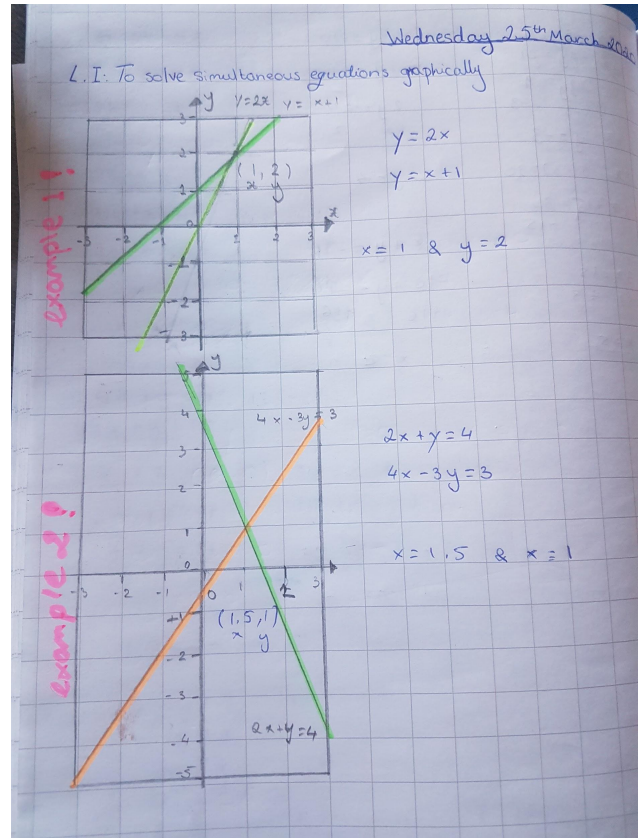 Wednesday 25th March 2020
L.I: To solve simultaneous equations graphically
example 1!
y y=2x y= x+1
3
2
1
0
-3 -2 -1 1 2 3 x
-1
-2
-3
(1, 2)
x y
y = 2x
y = x+1
x = 1 & y = 2
example 2!
y
5
4
3
2
1
0
-3 -2 -1 0 1 2 3
-2
-3
-4
-5
4x-3y=3
(1,5,1)
x y
2x+y=4
2x+y=4
4x-3y=3
x=1.5 & x=1